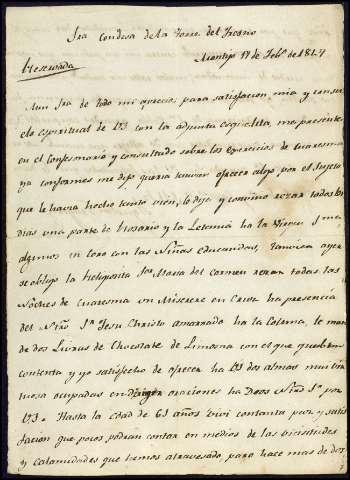 Sra condesa de la Torre del Fresno
Montijo 17 de Feb.º de 1827
Reservada
Mui Sra de todo mi aprecio, para satisfacion mia y consu
elo espiritual de VS con la adjunta esquelita, me presente
en el confesonario y consultado sobre los exercicios de cuaresma
ya conformes me dijo queria tambien ofrecer algo, por el sujeto
que le havia hecho tanto vien, lo dejé y convino rezar todos los
dias una parte de Rosario y la Letania ha la Virgen
algunos en coro con las Niñas educandas, tanvien ayer
se obligo la Religiosita Sor Maria del Carmen rezar todas las
Noches de cuaresma un Miserere en Cruz ha presencia
del Ntrõ Sr Jesu Christo amarrado ha la Coluna, le man
de dos Livras de Chocolate de Limosna con el que quedaron
contenta y yo satisfecho de ofrecer ha VS dos almas mui vir
tuosa ocupadas en dirigir oraciones ha Dios Ntrõ Sr por
VS. Hasta la edad de 61 años vivi con tanta paz y satis
facion que pocos podran contar en medios de las vicisitudes
y calamidades que hemos atravesado, pero hace mas de dos